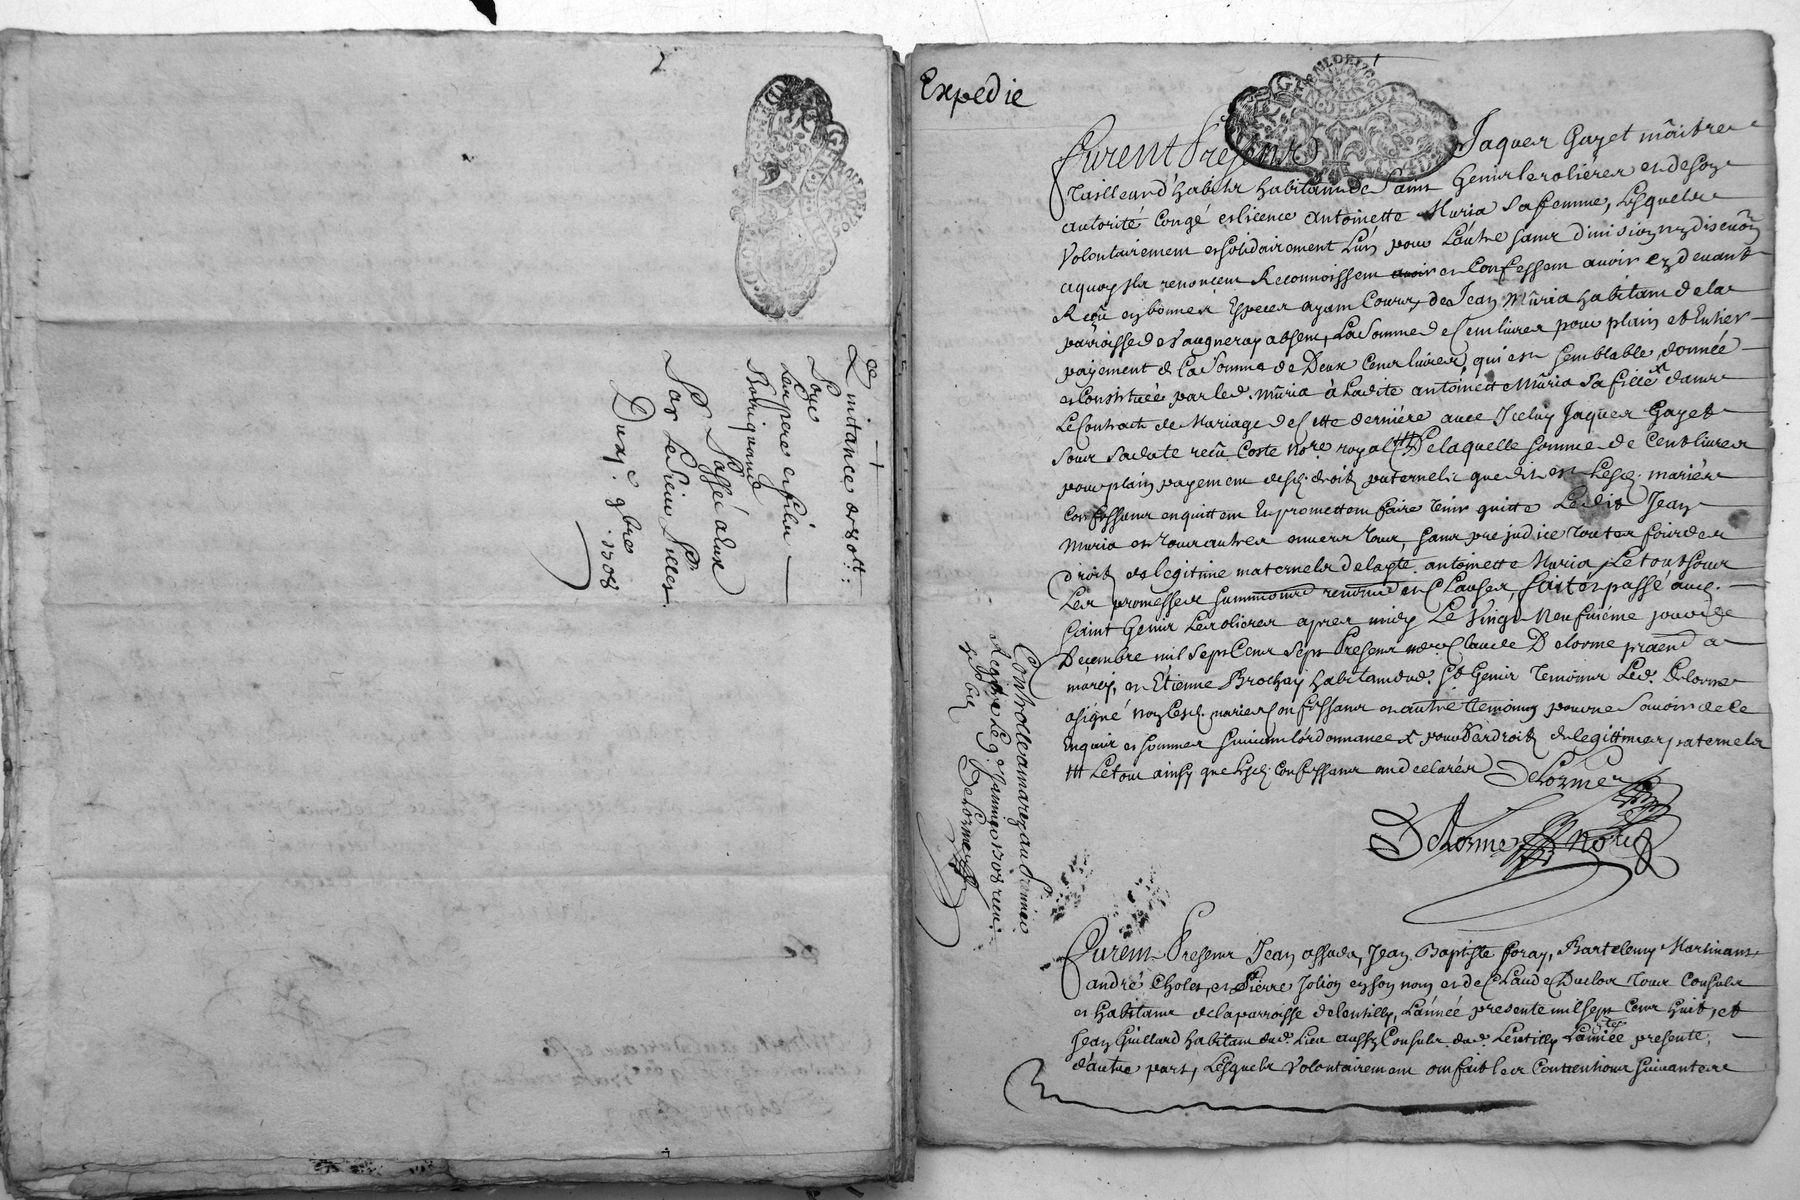 Quitance de 80ᵗᵗ:
Loys
Les pere et filz
Robriquand
Passé a lux
Par le Sieur Gilles
Du xj.e 9bre 1708
Expedie
Furent Presens Jaques Gayet mâitre
Tailleur d'habitz habitant de Saint Genis les olieres et de son
autorité Congé et licence Antoinette Muria sa femme, Lesquels
Volontairement et solidairement L'un pour L'autre sans division ny discution
a quoy ils renoncent Reconnoissent et Confessent avoir cy devant
Reçû en bonnes Especes ayant Cours, de Jean Mûria habitant de la
parroisse de Vaugneray absent, La Somme de Cent livres pour plain et Entier
payement de La Somme de Deux Cent livres, qui est semblable donnée
et Constituée par led. Mûria à Ladite antoinette Mûria sa fille x dans
Le Contract de Mariage de Cette derniére avec Iceluy Jaques Gayet
sous sa date reçû Coste No.re royal ttt De laquelle somme de Cent livres
pour plain payement desd. droits paternels que dit est Lesd. mariés
Confessans en quittent Et promettent faire tenir quitte Ledit Jean
Muria et tous autres envers tous, sans prejudice toutes fois des
Droits de legitime maternels de lad.te antoinette Muria, Le tout sous
Les promesses et Clauses, fait et passé aud.
saint Genis Les olieres apres midy Le Vingt Neufviéme jour de
Decembre mil sept Cent sept Present me Claude Delorme
et Étienne Brochay habitant dud. St Genis Temoins Led. Delorme
a signé non Lesd. mariés Confessans et autre temoing pour ne Savoir de ce
Enquis et sommés suivant l'ordonnance x pour Ses droits de legittimes paternels
ttt Le tout ainsy que Lesd. Confessans ont declarés Delorme
Delorme No.re
Controlle a marcy au premier
Registre Le 9. Janvier 1708 reçu
Delorme
Furent Presens Jean assada, Jean Baptiste foray, Bartelemy Martinant
andré Cholet, et Pierre Jolion en son nom et de Claude Duclos Tous Consuls
et habitans de la parroisse de lentilly, L'année presente mil sept Cent huit, et
Jean Guillard habitant dud. Lieu aussy Consuls dud. Lentilly L'année presente,
d'autre part, Lesquels Volontairement ont fait les Conventions suivantes